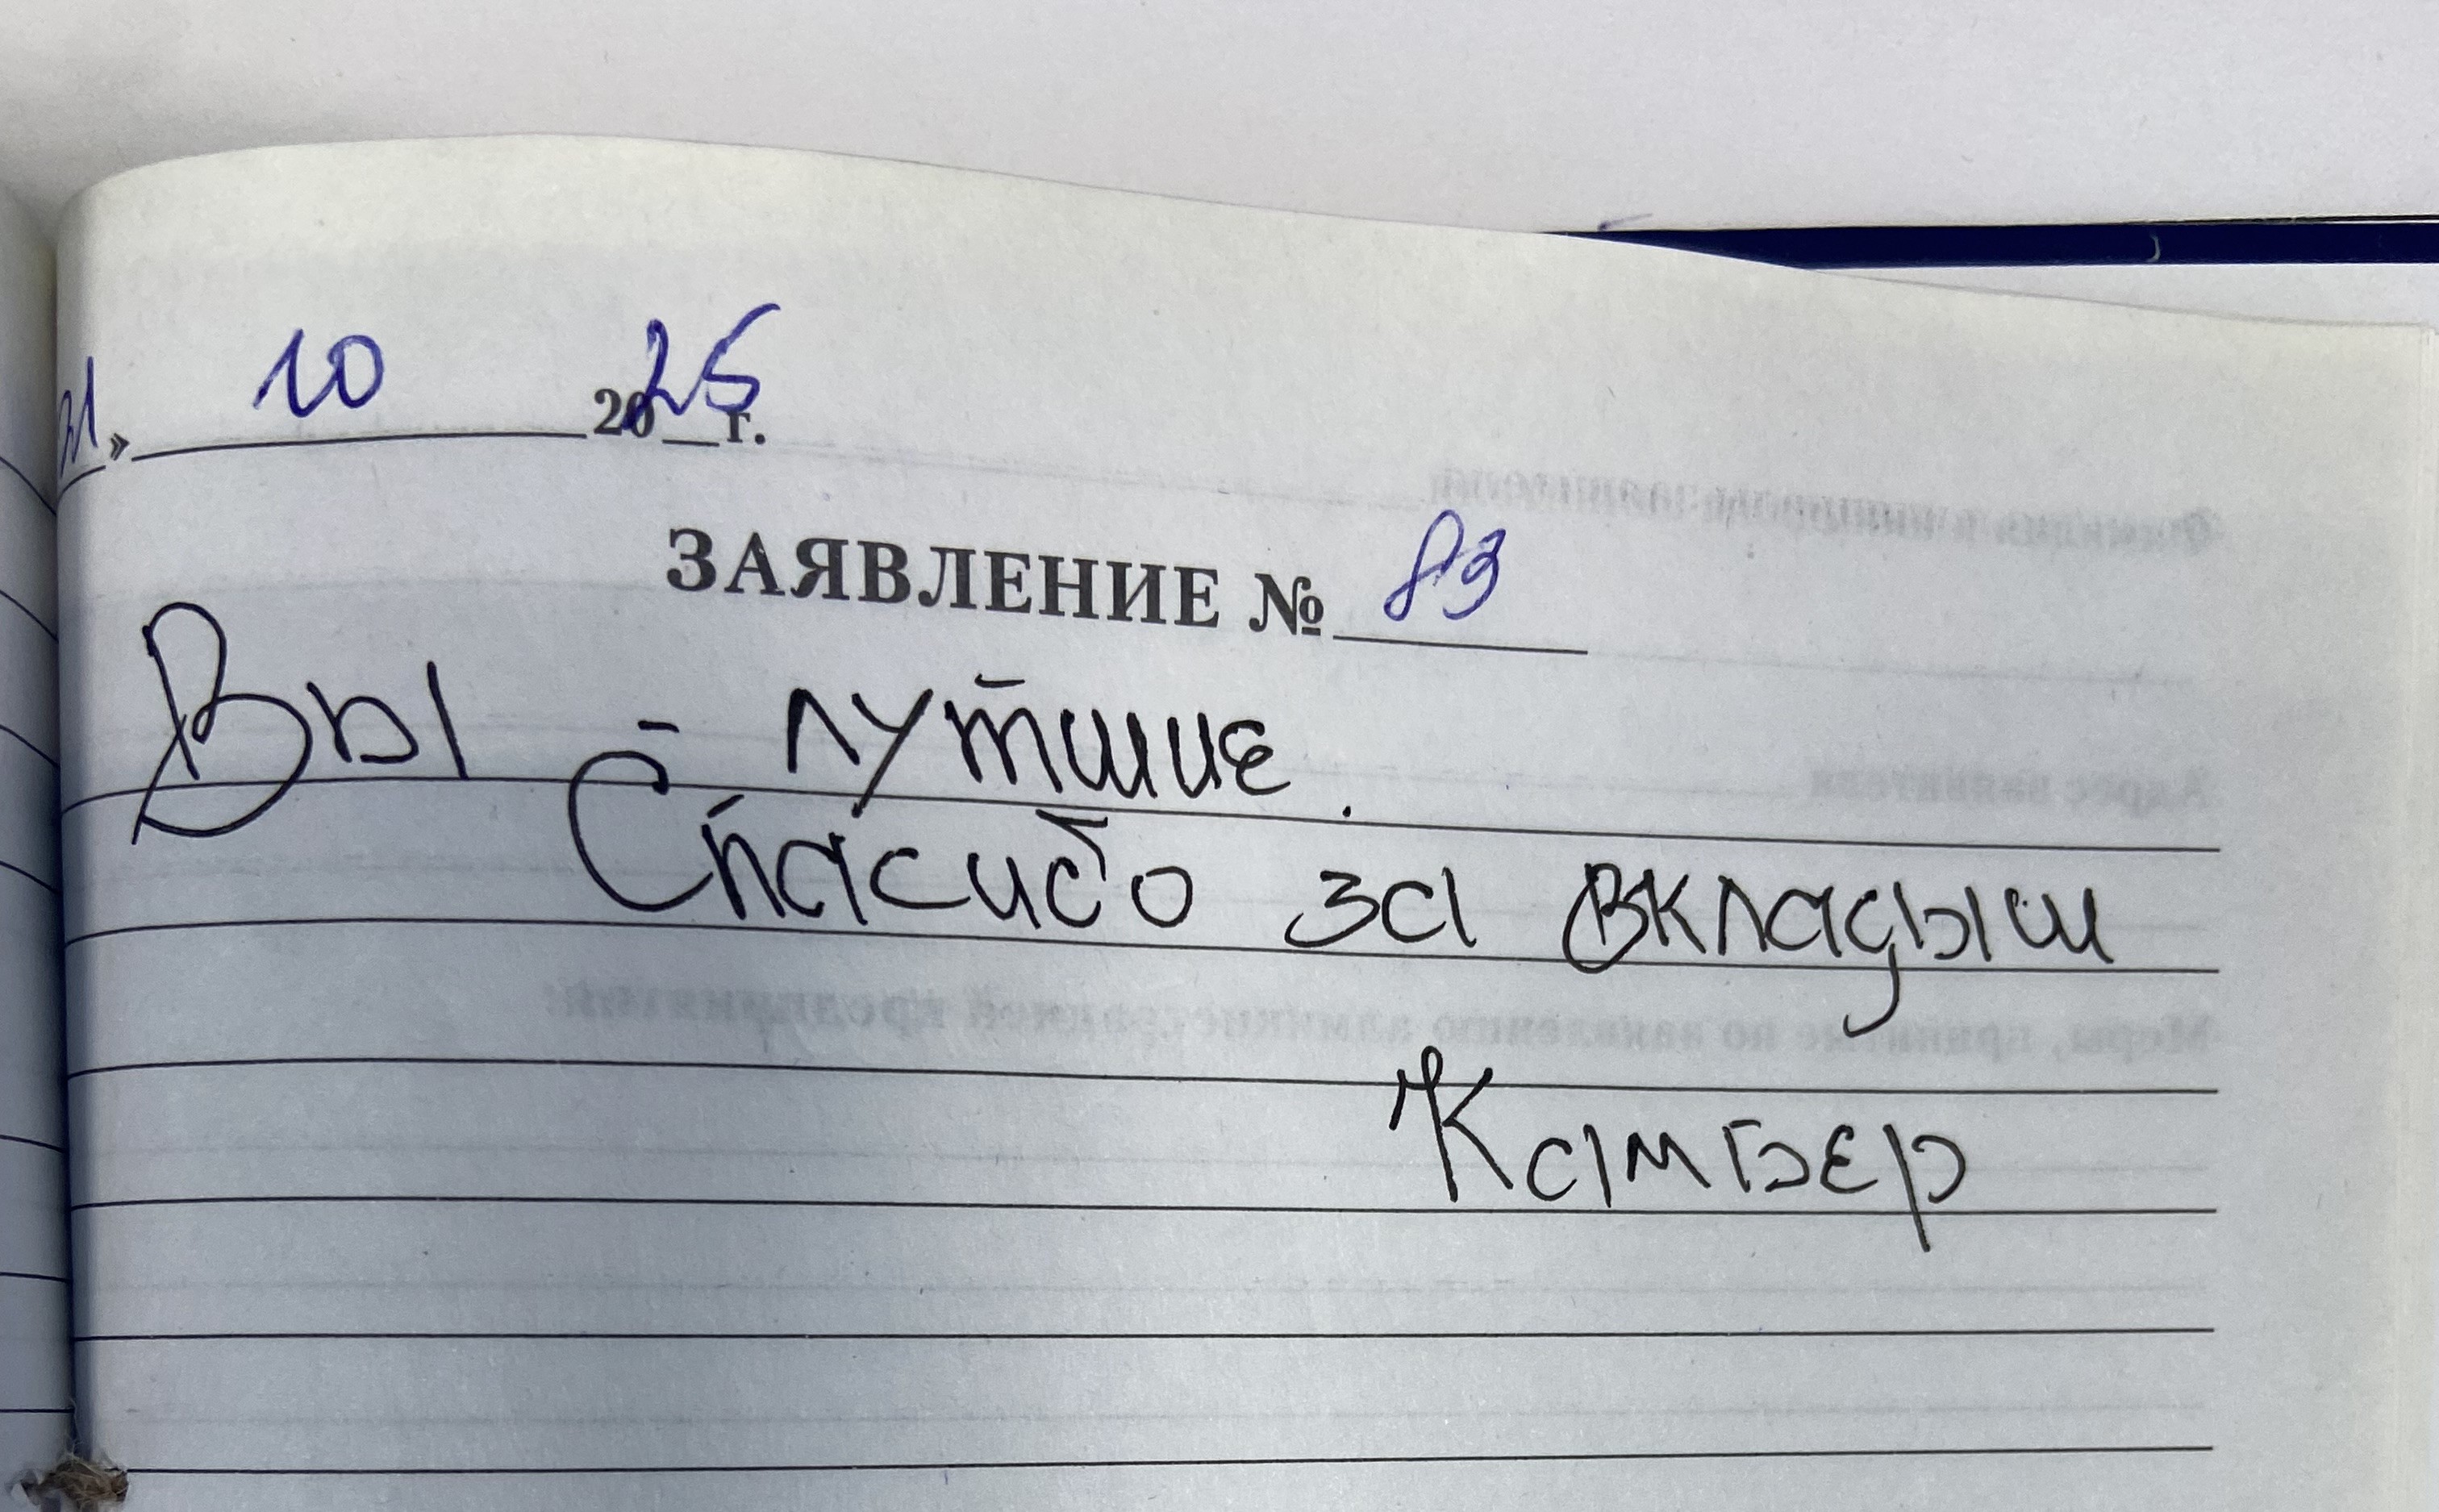 21» 10 2025 г.
ЗАЯВЛЕНИЕ № 83
Вы - лутшие.
Спасибо за вкладыш
Камбер